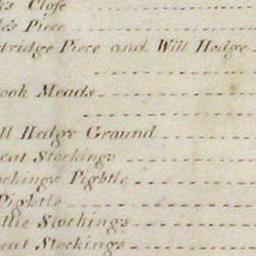 s Close
's Piece
tridge Piece and Will Hedge
ook Meads
ll Hedge Ground
eat Stockings
ockings Pightle
Pightle
ttle Stockings
eat Stockings